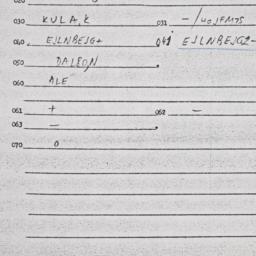 030 KULA,K 031 -/
040 EJLNBEJG+ 041 EJLNBEJG
050 DALEON
060 ALE
061 + 062 -
063 -
070 0